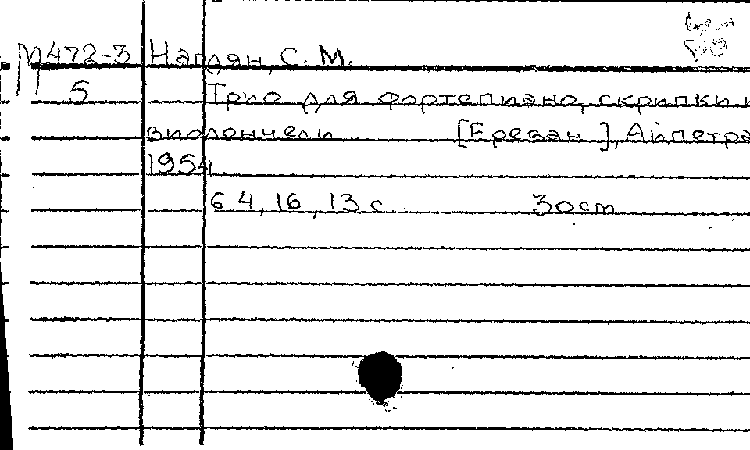 М472-3 Наглян, С. М.
5 Трио для фортепиано, скрипки и
виолончели [Ереван], Айпетра
1954
64, 16, 13 с. 30cm